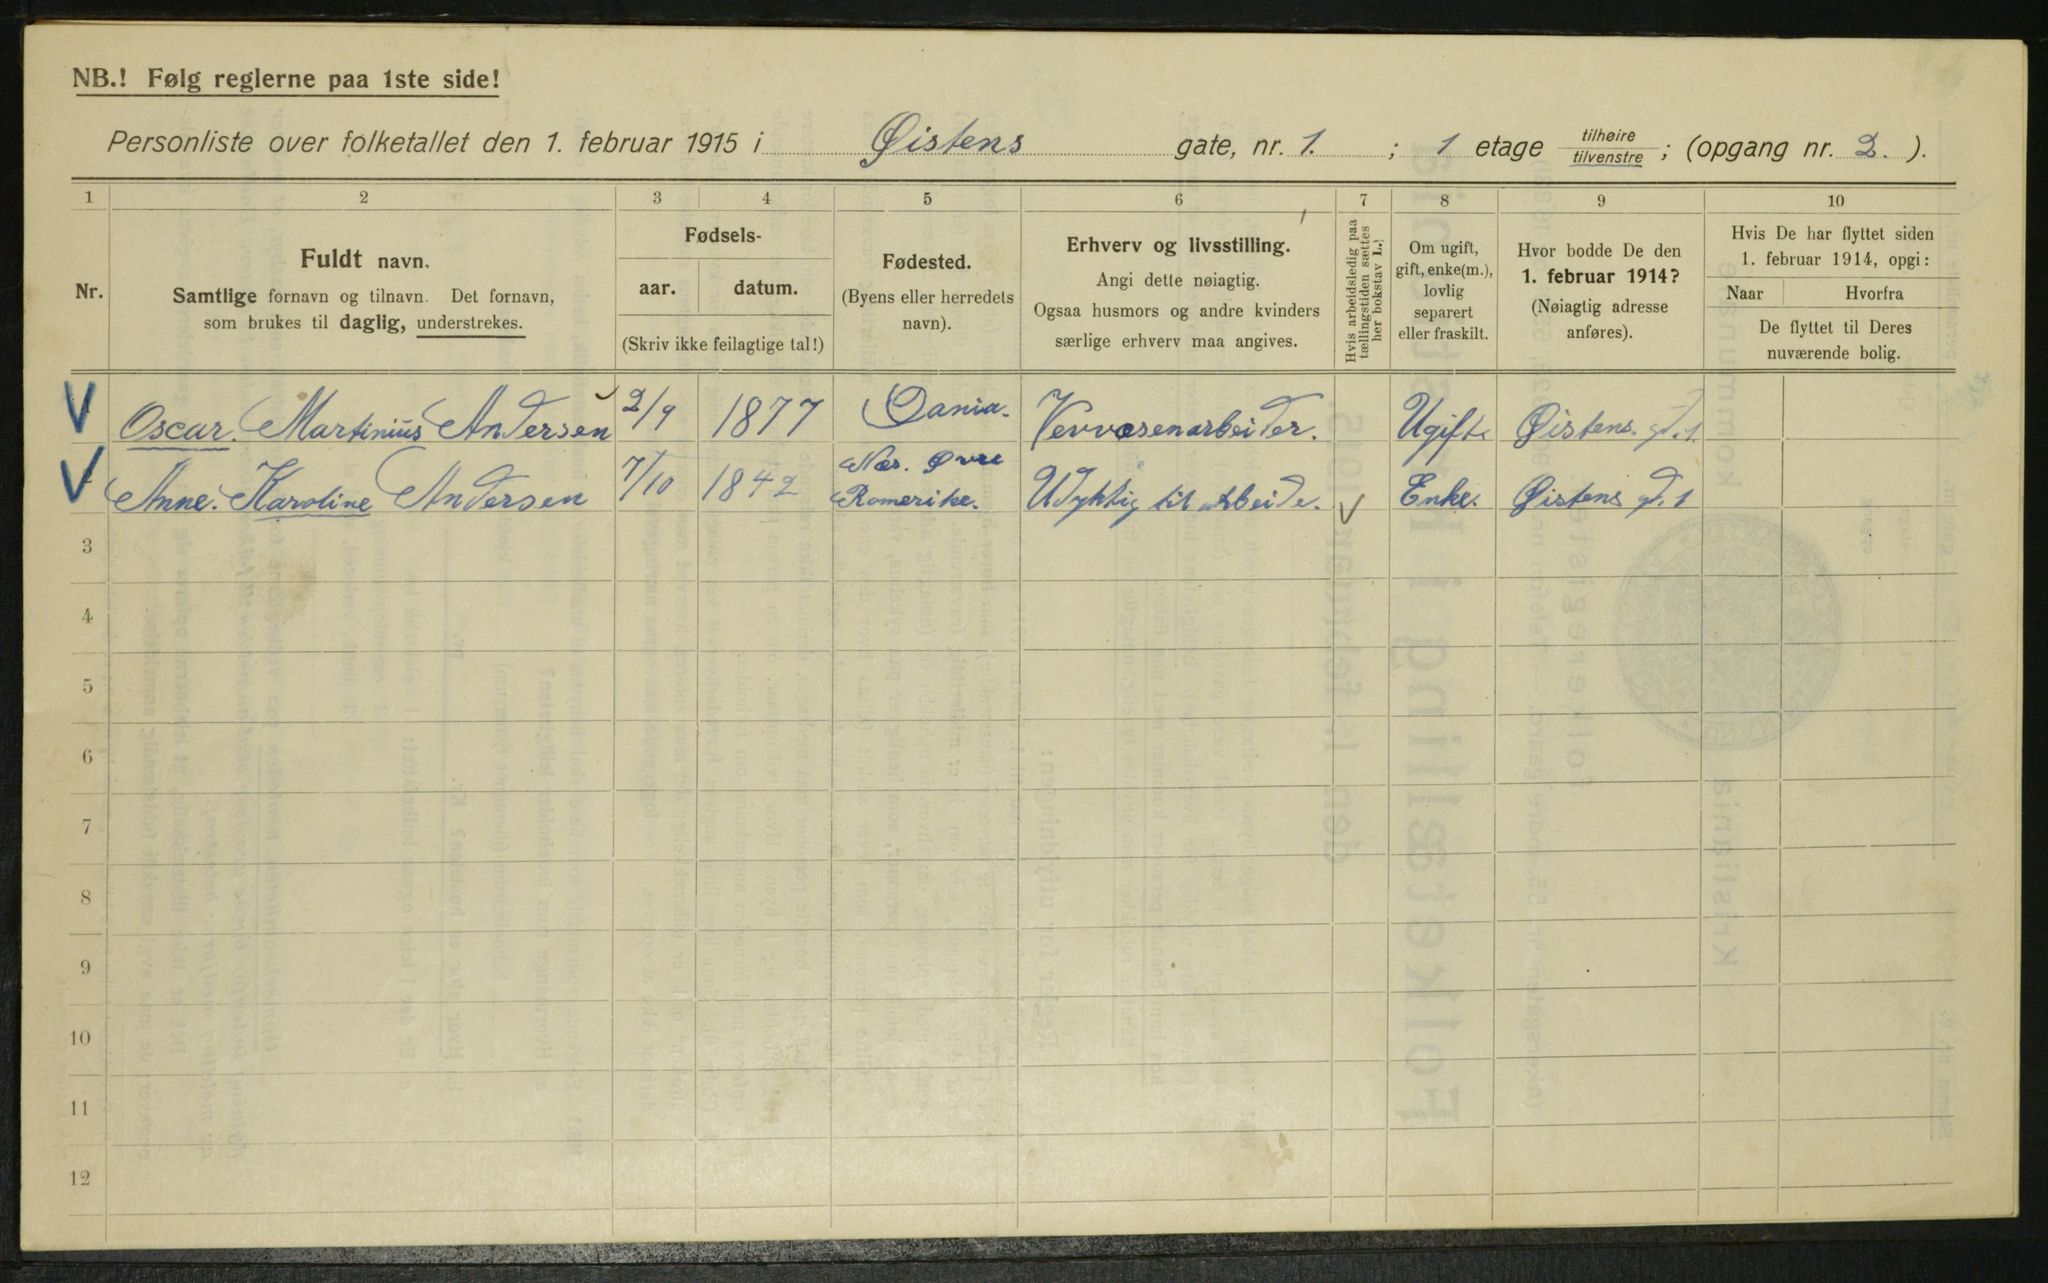 NB.! Følg reglerne paa 1ste side!
Personliste over folketallet den 1. februar 1915 i Øistens gate, nr. 1. ; 1 etage tilhøire tilvenstre ; (opgang nr. 2. ).
1 2 3 4 5 6 7 8 9 10
Nr.
Fuldt navn.
Samtlige fornavn og tilnavn. Det fornavn,
som brukes til daglig, understrekes.
Fødsels-
aar. datum.
(Skriv ikke feilagtige tal!)
Fødested.
(Byens eller herredets
navn).
Erhverv og livsstilling.
Angi dette nøiagtig.
Ogsaa husmors og andre kvinders
særlige erhverv maa angives.
Hvis arbeidsledig paa
tællingstiden sættes
her bokstav L.)
Om ugift,
gift, enke(m.),
lovlig
separert
eller fraskilt.
Hvor bodde De den
1. februar 1914?
(Nøiagtig adresse
anføres).
Hvis De har flyttet siden
1. februar 1914, opgi:
Naar Hvorfra
De flyttet til Deres
nuværende bolig.
Oscar. Martinius Andersen 2/9 1877 Ugift Øistens. gd. 1
Anne. Karoline Andersen 7/10 1842 Næs. Øvre Romerike. Udyktig til arbeide. Enke. Øistens gd. 1
3
4
5
6
7
8
9
10
11
12